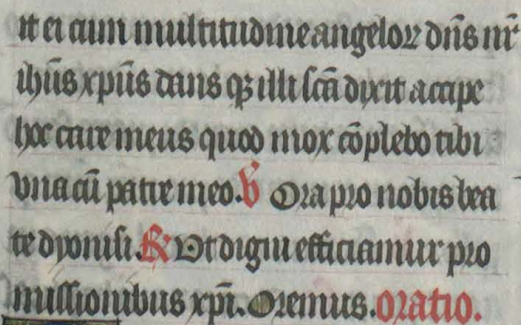 it ei cum multitudine angeloꝝ dn̄s nr̄
ih̄us xp̄us dans qꝫ illi sc̄a dixit accipe
hoc care meus quod mox cōplebo tibi
vna cū patre meo. ℣ Ora pro nobis bea
te dyonisi. ℟ Vt digni efficiamur pro
missionibus xp̄i. Oremus. Oratio.